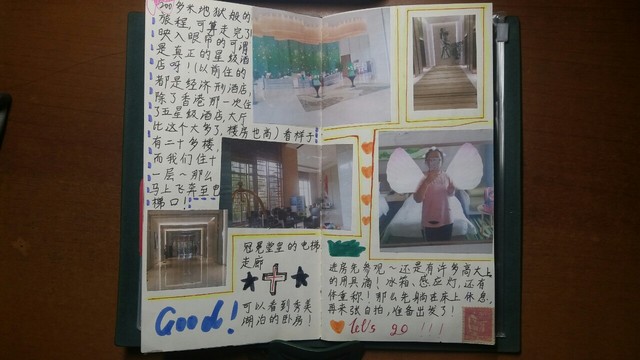 200多米地狱般的
旅程，可算走完了
映入眼帘的可谓
是真正的星级酒
店呀！（以前住的
都是经济形酒店，
除了香港那一次住
了五星级酒店，大厅
比这个大多了，楼房也高）看样子
有二十多楼，
而我们住十
一层~那么
马上飞奔至电
梯口！
冠冕堂皇的电梯
走廊
Good!
可以看到秀美
湖泊的卧房！
进房先参观~还是有许多高大上
的用具滴！冰箱、感应灯，还有
体重称！那么先躺在床上休息，
再来张自拍，准备出发了！
let's go!!!